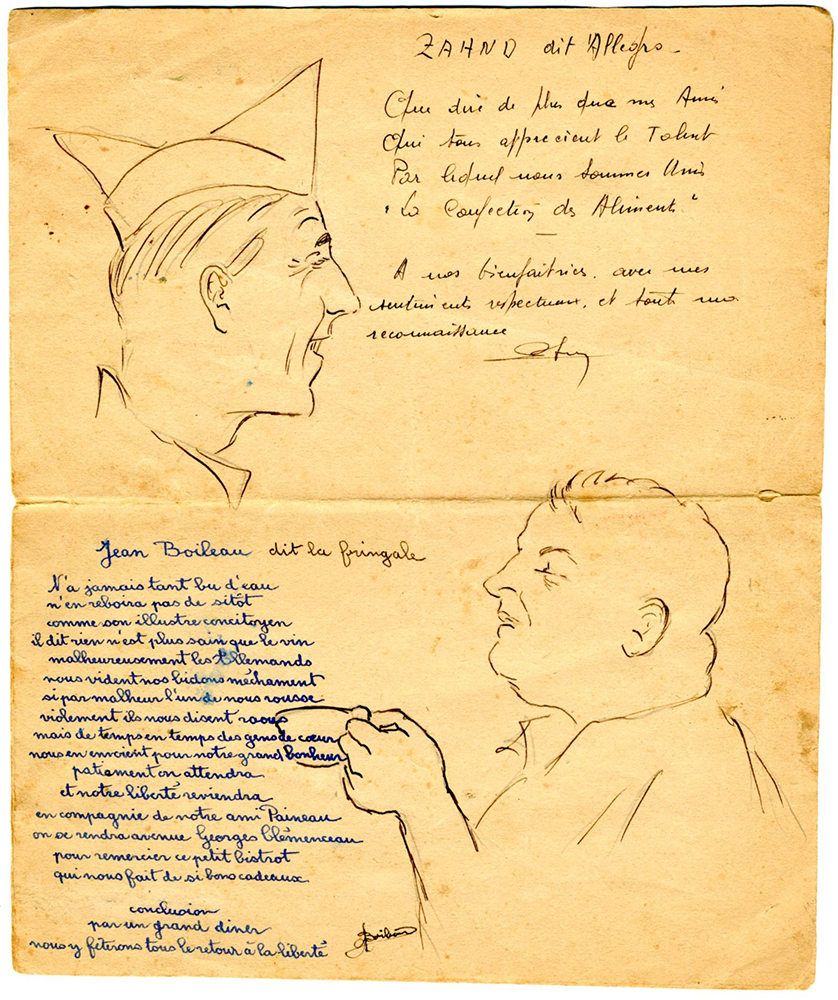 ZAHND dit Allegro
Que dire de plus que mes Amis
Qui tous apprecient le Talent
Par lequel nous sommes Unis
"La Confection des Aliments"
A nos bienfaitrices, avec mes
sentiments respectueux, et toute ma
reconnaissance
Jean Boileau dit la fringale
N'a jamais tant bu d'eau
n'en reboira pas de sitôt
comme son illustre concitoyen
il dit rien n'est plus sain que le vin
malheureusement les Allemands
nous vident nos bidons méchament
si par malheur l'un de nous rousse
violement ils nous disent raous
mais de temps en temps des gens de cœur
nous en envoient pour notre grand bonheur
patiament on attendra
et notre liberté reviendra
en compagnie de notre ami Paineau
on se rendra avenue Georges Clémenceau
pour remercier ce petit bistrot
qui nous fait de si bons cadeaux
conclusion
par un grand diner
nous y fêterons tous le retour à la liberté
JBoileau